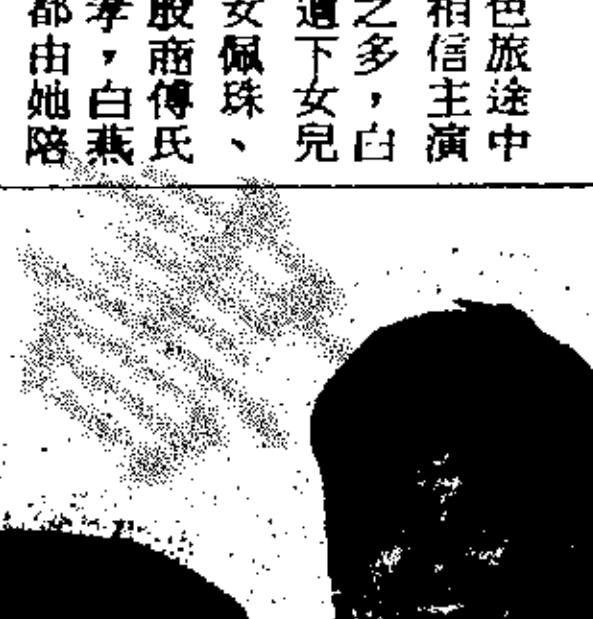 色旅途中
相信主演
之多，白
遺下女兒
女佩珠、
殷商傅氏
孝，白燕
都由她陪